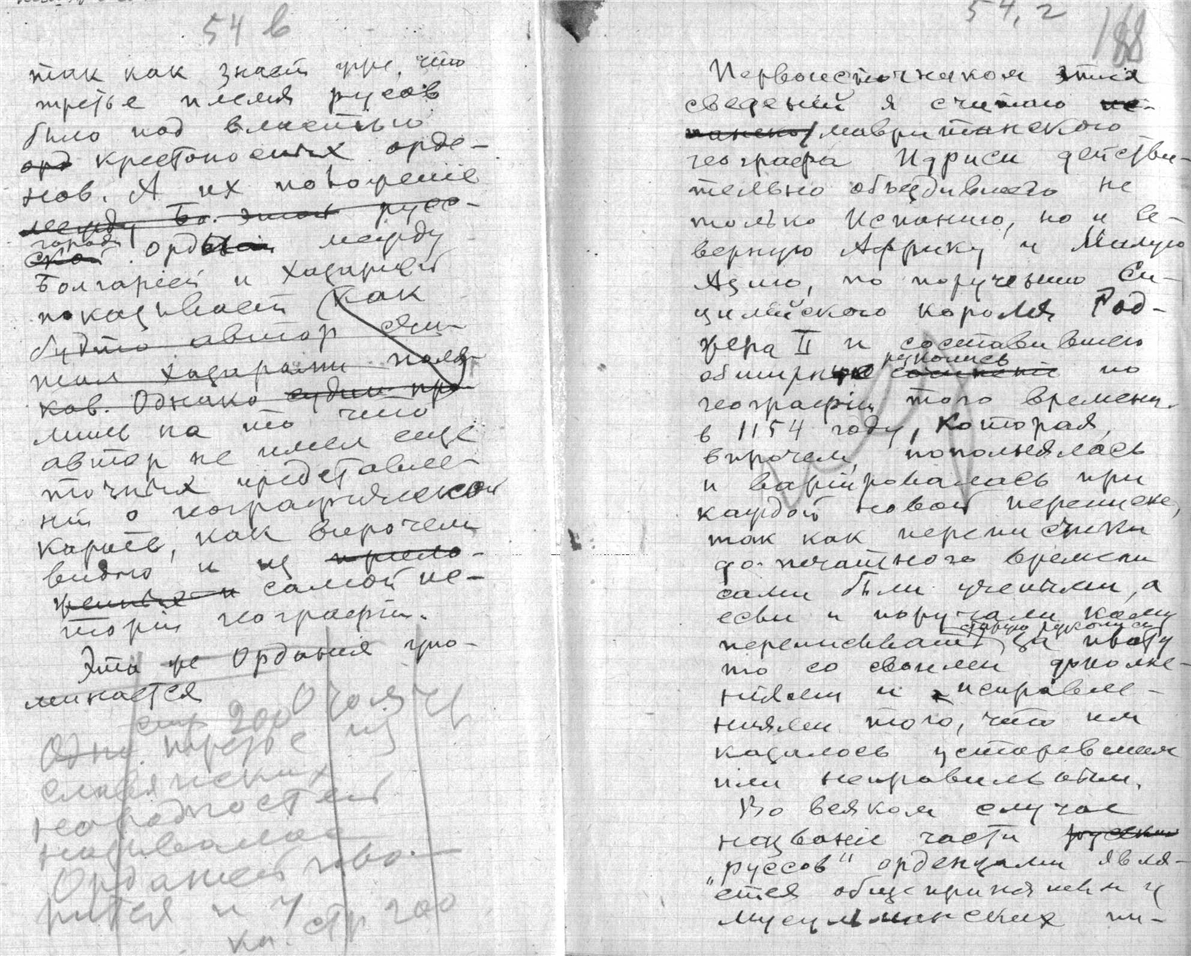 54 в
так как знает уже, что
третье племя русов
было под властью
орд крестоносных орде-
нов. А их положение
между Бо. русс-
город
ской орды между
Болгарией и Хазарией
показывает (как
будто автор счи-
тал хазарами поля-
ков. Однако судим про
лишь на то что
автор не имел еще
точных представле-
ний о географических
картѣ, как впрочем
видно и из прило-
женных и самой ис-
торіи географіи.
Эта же Ордания упо-
минается
стр 200 О
Одно третье из
славянских
народностей
называлось
Орданей гово-
рится и у
кн. стр 200
54, г
188
Первоисточником этих
сведений я считаю ис-
панского/мавританского
географа Идриси действи-
тельно объездившего не
только Испанию, но и се-
верную Африку и Малую
Азию, по порученью Си-
цилійского короля Род-
жера II и составившего
рукопись
обширную сочинение по
географіи того времени
в 1154 году, которая,
впрочем, пополнялась
и варіировалась при
каждой новой переписке,
так как переписчики
до-печатного времени
сами были учеными, а
если и поручали кому
старую рукопись
переписывать за плату
то со своими дополне-
ниями и исправле-
ниями того, что им
казалось устаревшим
или неправильным.
Во всяком случае
названіе части русских
"руссов" орденцами явля-
ется общепринятым у
мусульманских пи-